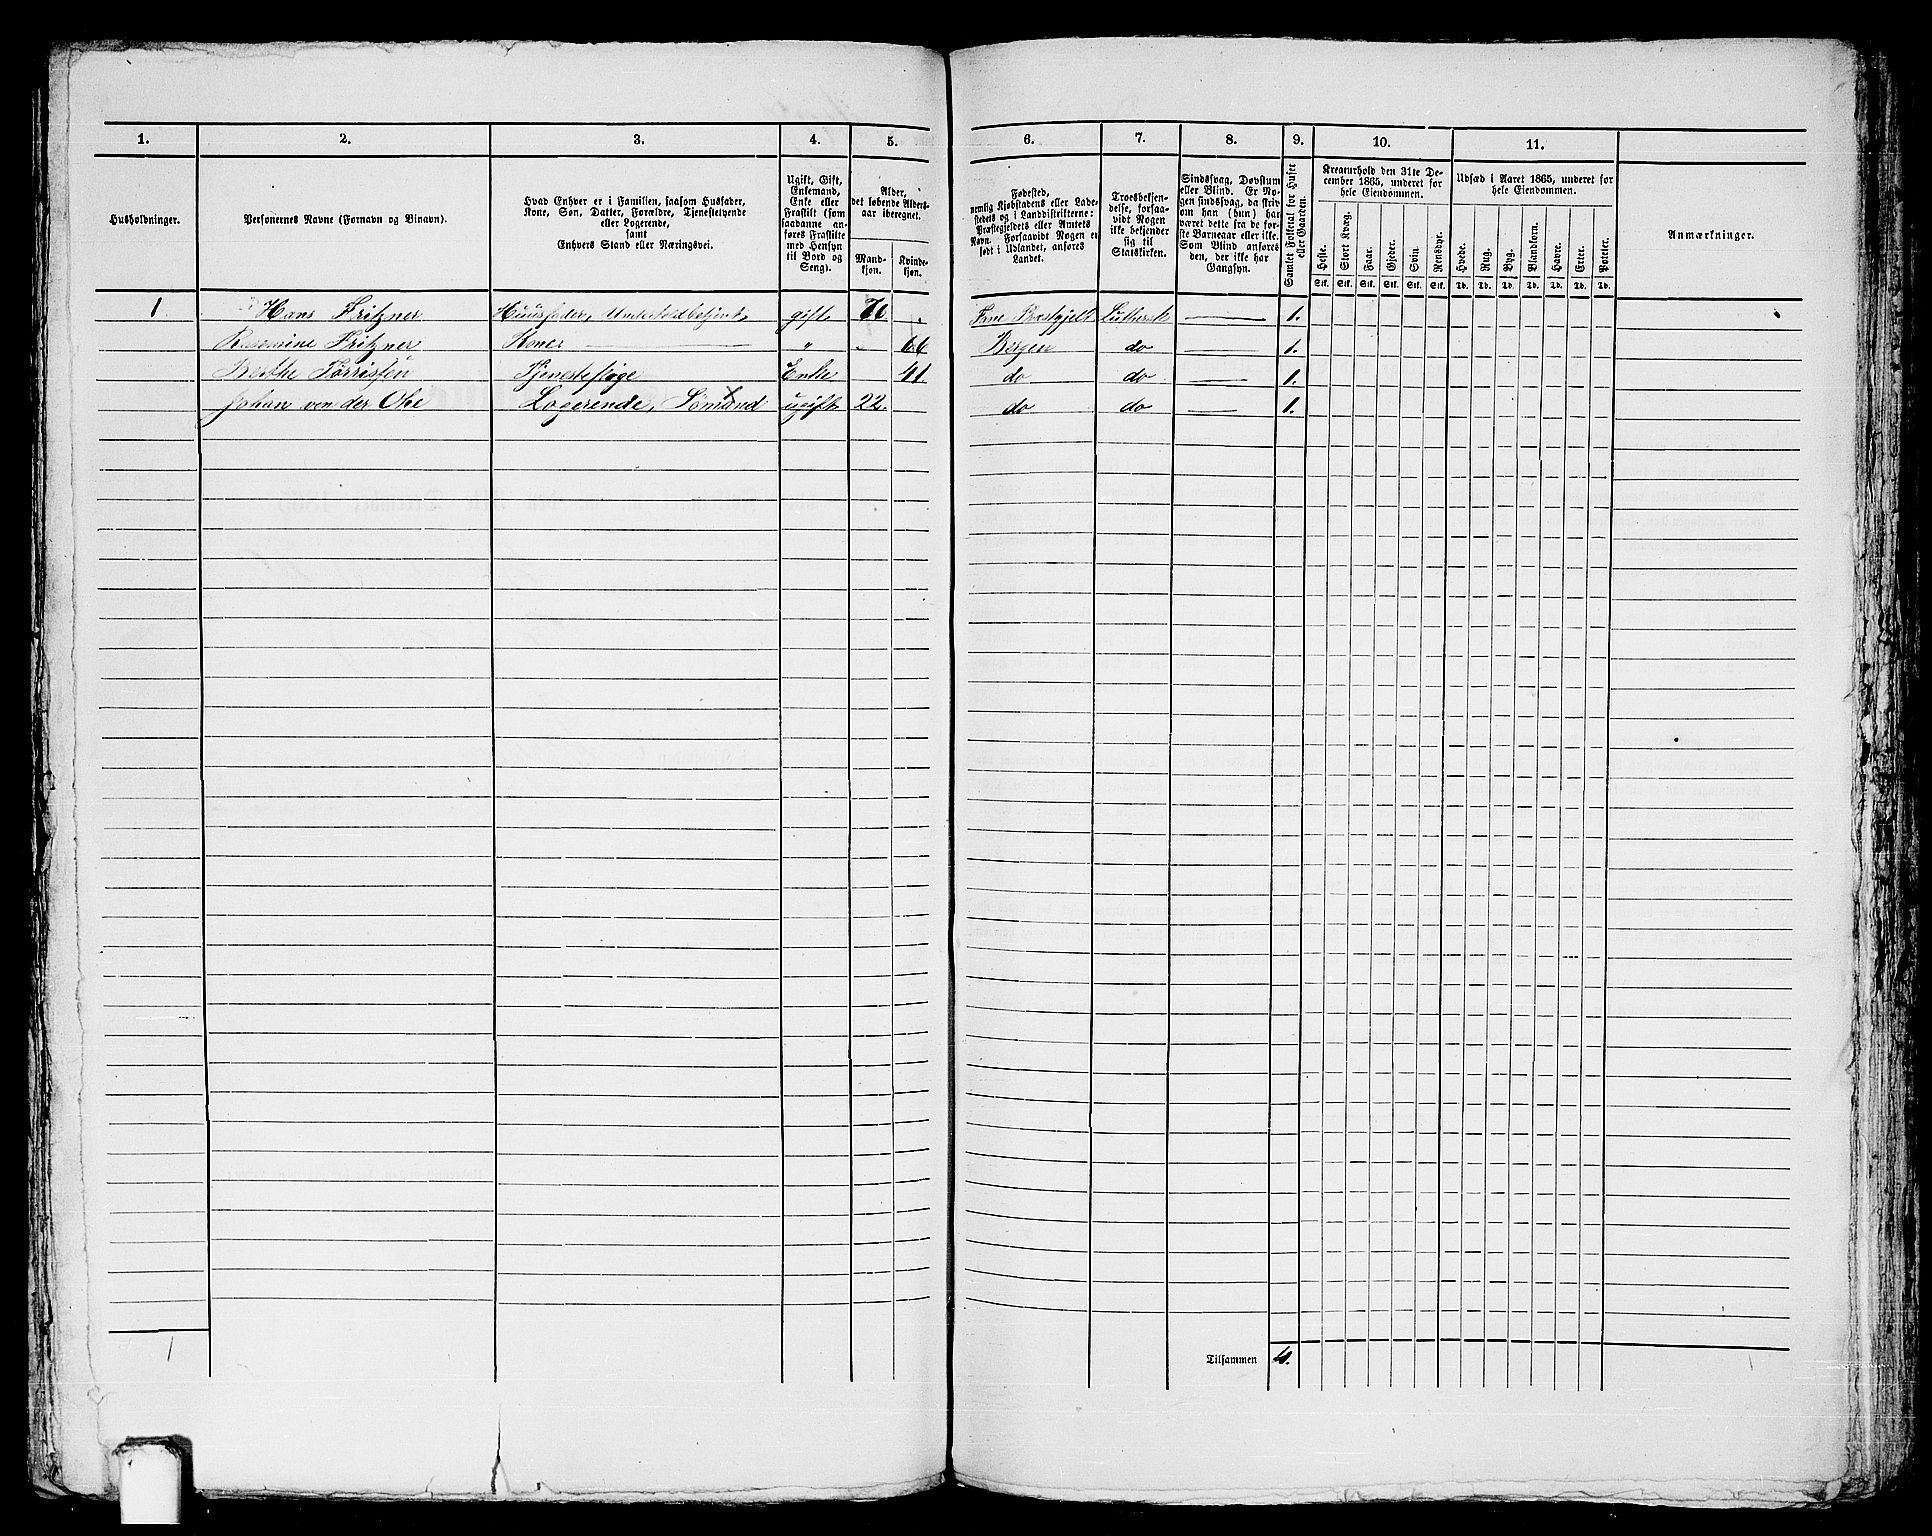 1. 2. 3. 4. 5. 6. 7. 8. 9. 10. 11.
Husholdninger.
Personernes Navne (Fornavn og Binavn).
Hvad Enhver er i Familien, saasom Husfader,
Kone, Søn, Datter, Forældre, Tjenestetyende
eller Logerende,
samt
Enhvers Stand eller Næringsvei.
Ugift, Gift,
Enkemand,
Enke eller
Fraskilt (som
saadanne an-
føres Fraskilte
med Hensyn
til Bord og
Seng).
Alder,
det løbende Alders-
aar iberegnet.
Mand-
kjøn.
Kvinde-
kjøn.
Fødested,
nemlig Kjøbstadens eller Lade-
stedets og i Landdistrikterne:
Præstegjeldets eller Amtets
Navn. Forsaavidt Nogen er
født i Udlandet, anføres
Landet.
Troesbekjen-
delse, forsaa-
vidt Nogen
ikke bekjender
sig til
Statskirken.
Sindssvag, Døvstum
eller Blind. Er No-
gen sindssvag, da skriv
om han (hun) har
været dette fra de før-
ste Barneaar eller ikke.
Som Blind anføres
den, der ikke har
Gangsyn.
Samlet Folketal for Huset
eller Gaarden.
Kreaturhold den 31te De-
cember 1865, underet for
hele Eiendommen.
Heste. Stort Kvæg. Faar. Gjeder. Svin. Rensdyr.
Stk. Stk. Stk. Stk. Stk. Stk.
Udsæd i Aaret 1865, underet for
hele Eiendommen.
Hvede. Rug. Byg. Blandkorn. Havre. Erter. Poteter.
Td. Td. Td. Td. Td. Td. Td.
Anmærkninger.
1 Hans Fritzner Huusfader, gift 76 Luthersk 1.
Fritzner Kone " 66 Bergen do 1.
Berthe Tørrissen Tjenestepige Enke 41 do do 1.
Johan von der Ohe Logerende, Sømand ugift 22. do do 1.
1
Tilsammen 4.